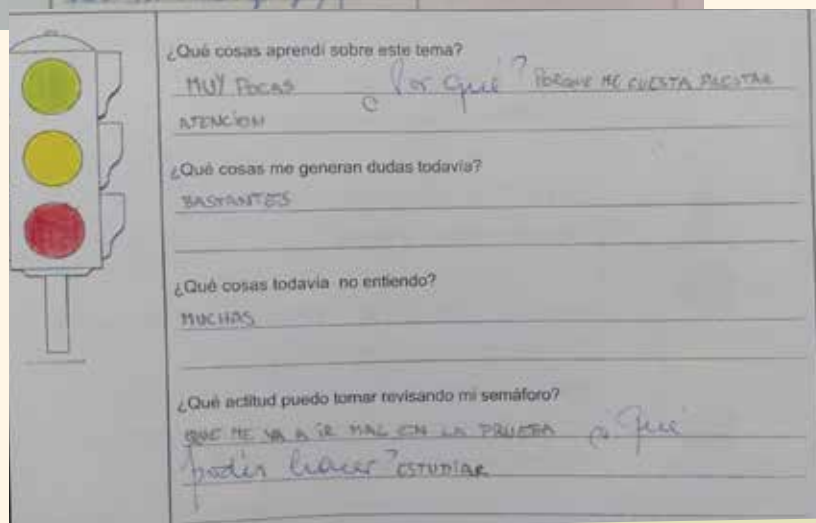 ¿Qué cosas aprendí sobre este tema?
MUY POCAS ¿Por qué? PORQUE ME CUESTA PRESTAR
ATENCION
¿Qué cosas me generan dudas todavía?
BASTANTES
¿Qué cosas todavía no entiendo?
MUCHAS
¿Qué actitud puedo tomar revisando mi semáforo?
QUE ME VA A IR MAL EN LA PRUEBA ¿Qué
podés hacer? ESTUDIAR